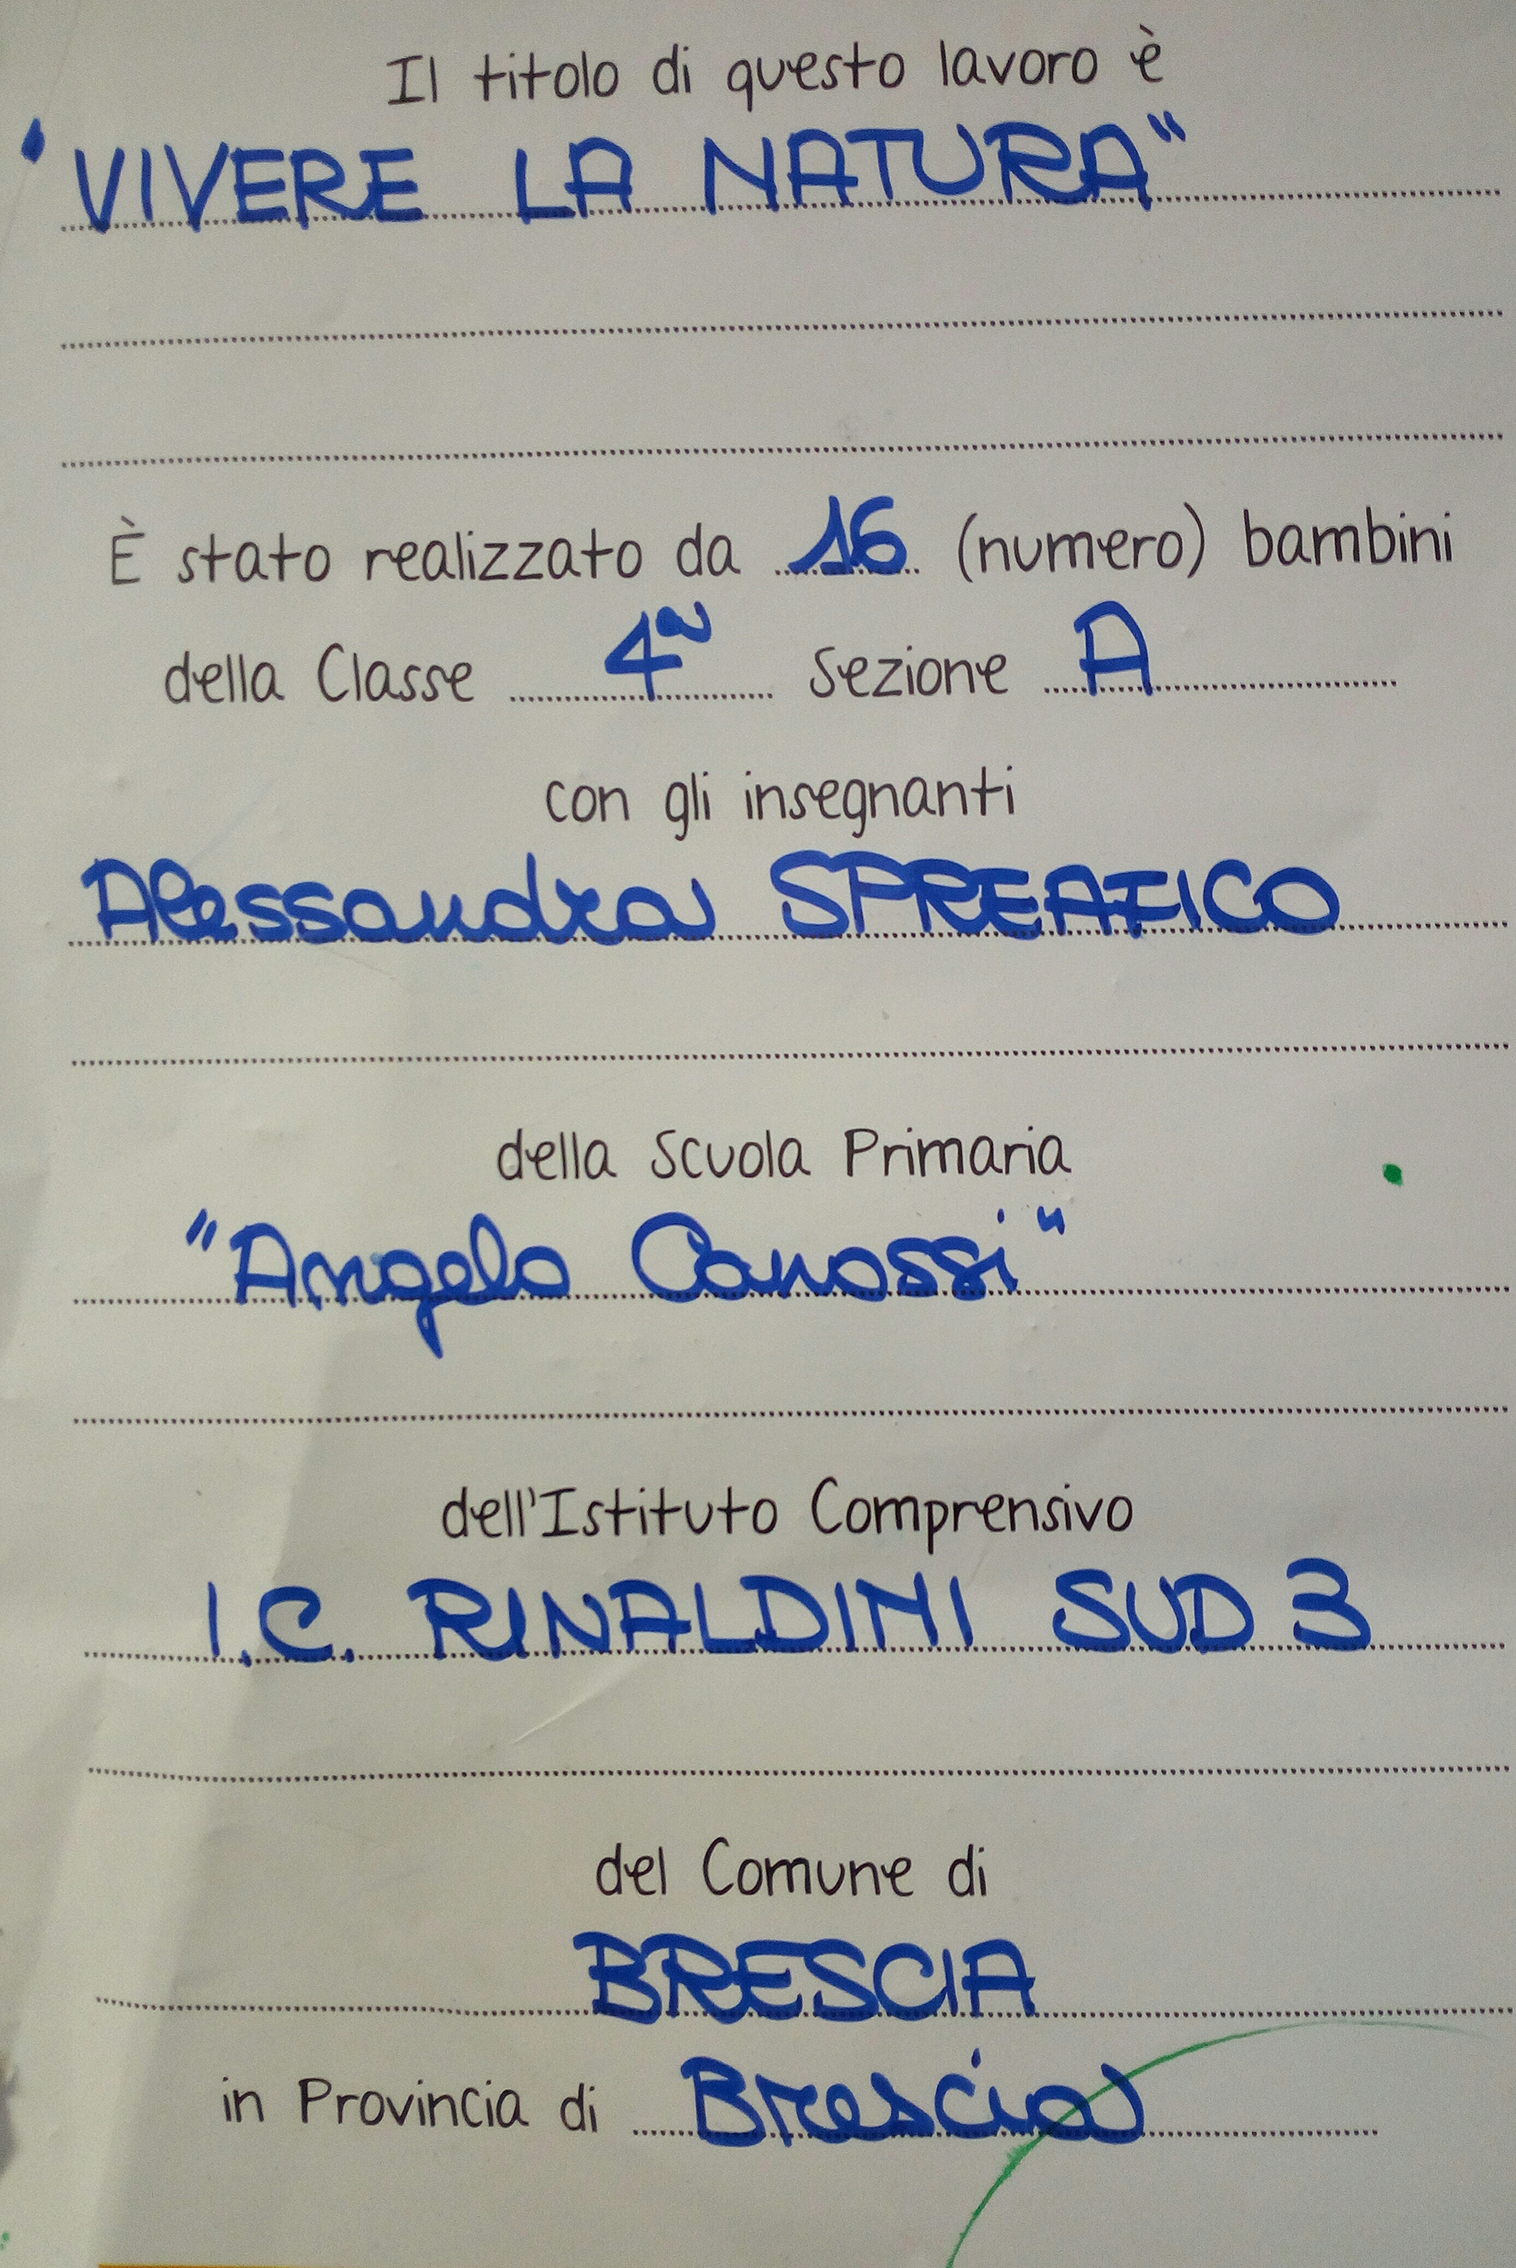 Il titolo di questo lavoro è
"VIVERE LA NATURA"
È stato realizzato da 16 (numero) bambini
della Classe 4ª Sezione A
con gli insegnanti
Alessandra SPREAFICO
della Scuola Primaria
"Angelo Canossi"
dell'Istituto Comprensivo
I.C. RINALDINI SUD 3
del Comune di
BRESCIA
in Provincia di Brescia